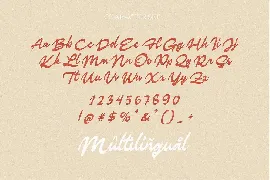 Aa Bb Cc Dd Ee Ff Gg Hh Ii Jj
Kk Ll Mm Nn Oo Pp Qq Rr Ss
Tt Uu Vv Ww Xx Yy Zz
1234567890
!@#$%^&*()_+
Mûltilíñguâl